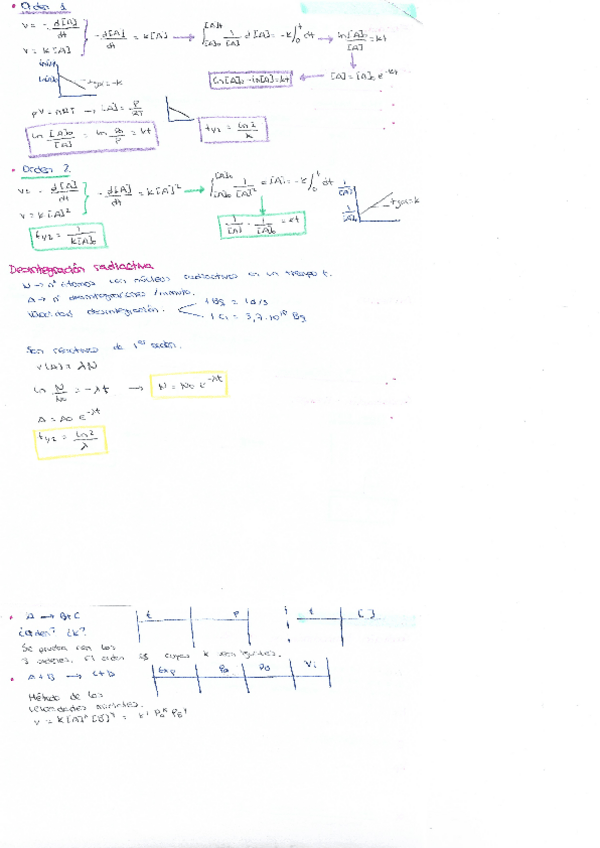 • Orden 1
v = - d[A]/dt
v = k[A]
- d[A]/dt = k[A] → ∫ 1/[A] d[A] = -k ∫ dt → ln [A]₀/[A] = kt
ln[A]₀ - ln[A] = kt ← [A] = [A]₀ e^-kt
tgα = -k
PV = nRT → [A] = P/RT
ln [A]₀/[A] = ln P₀/P = kt
t1/2 = ln2/k
• Orden 2
v = - d[A]/dt
v = k[A]²
- d[A]/dt = k[A]² → ∫ 1/[A]² d[A] = -k ∫ dt
1/[A]
1/[A]₀
tgα = k
t1/2 = 1/k[A]₀
1/[A] - 1/[A]₀ = kt
Desintegración radiactiva
N → nº átomos con núcleos radiactivos en un tiempo t.
A → nº desintegraciones /minuto.
Velocidad desintegración.
1 Bq = 1 d/s
1 Ci = 3,7·10¹⁰ Bq
Son reacciones de 1er orden.
v(A) = λN
ln N/N₀ = -λt → N = N₀ e^-λt
A = A₀ e^-λt
t1/2 = ln2/λ
• A → B+C
t P
t [ ]
¿Orden? ¿k?
Se prueba con los
3 órdenes. El orden es cuyas k sean iguales.
• A + B → C + D
Exp Pa Pb Vi
Método de las
velocidades iniciales.
v = k[A]ˣ[B]ʸ = k' Paˣ Pbʸ